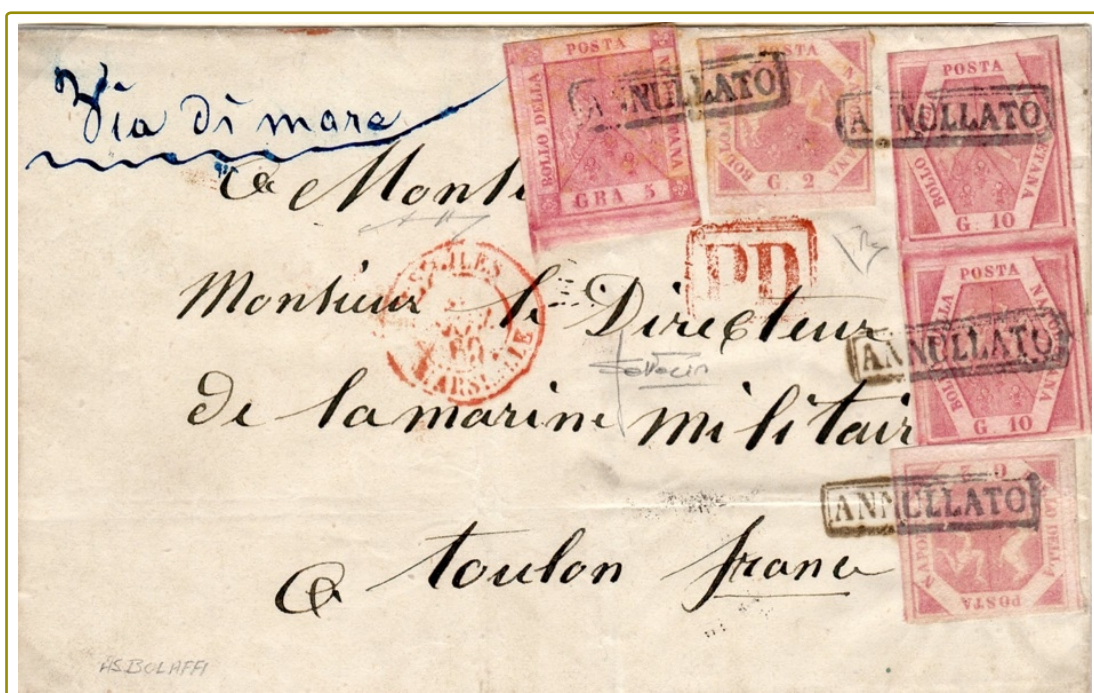 Via di mare
a Monsi
Monsieur le Directeur
de la marine militair
a toulon france
POSTA
BOLLO DELLA
GRA 5
ANNULLATO
POSTA
G. 2
POSTA
BOLLO
G. 10
ANNULLATO
POSTA
NAPOLETANA
G. 10
ANNULLATO
ANNULLATO
POSTA
PD
60
MARSEILLE
AS BOLAFFI